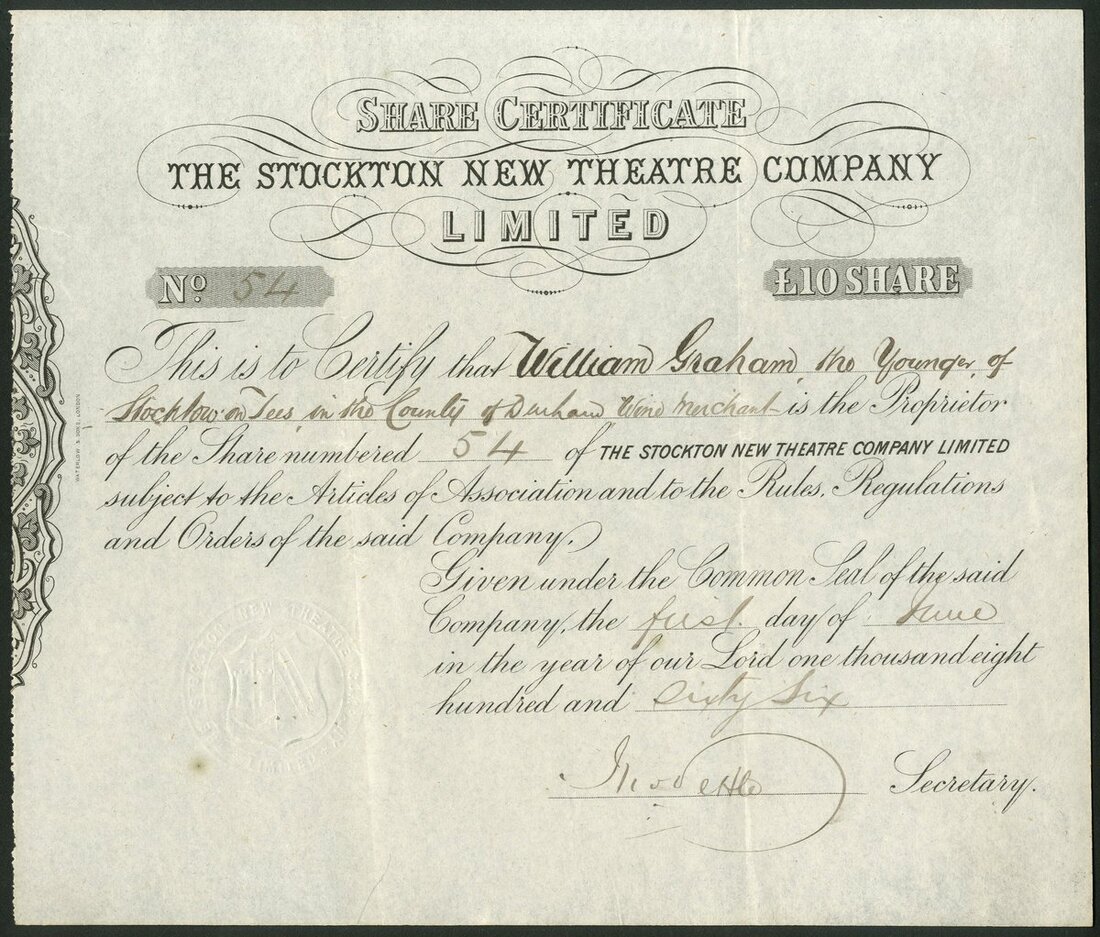 SHARE CERTIFICATE
THE STOCKTON NEW THEATRE COMPANY
LIMITED
No. 54
£10 SHARE
This is to Certify that William Graham, the Younger, of
Stockton on Tees, in the County of Durham Wine Merchant is the Proprietor
of the Share numbered 54 of THE STOCKTON NEW THEATRE COMPANY LIMITED
subject to the Articles of Association and to the Rules, Regulations
and Orders of the said Company.
Given under the Common Seal of the said
Company, the first day of June
in the year of our Lord one thousand eight
hundred and Sixty Six
Secretary.
WATERLOW & SONS, LONDON
NEW THEATRE
LIMITED